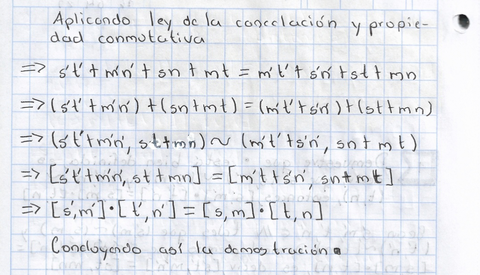 Aplicando ley de la cancelación y propie-
dad conmutativa
=> s't' + m'n' + sn + mt = m't' + s'n' + st + mn
=> (s't' + m'n') + (sn + mt) = (m't' + s'n') + (st + mn)
=> (s't' + m'n', st + mn) ~ (m't' + s'n', sn + mt)
=> [s't' + m'n', st + mn] = [m't + s'n', sn + mt]
=> [s', m'] · [t', n'] = [s, m] · [t, n]
Concluyendo así la demostración